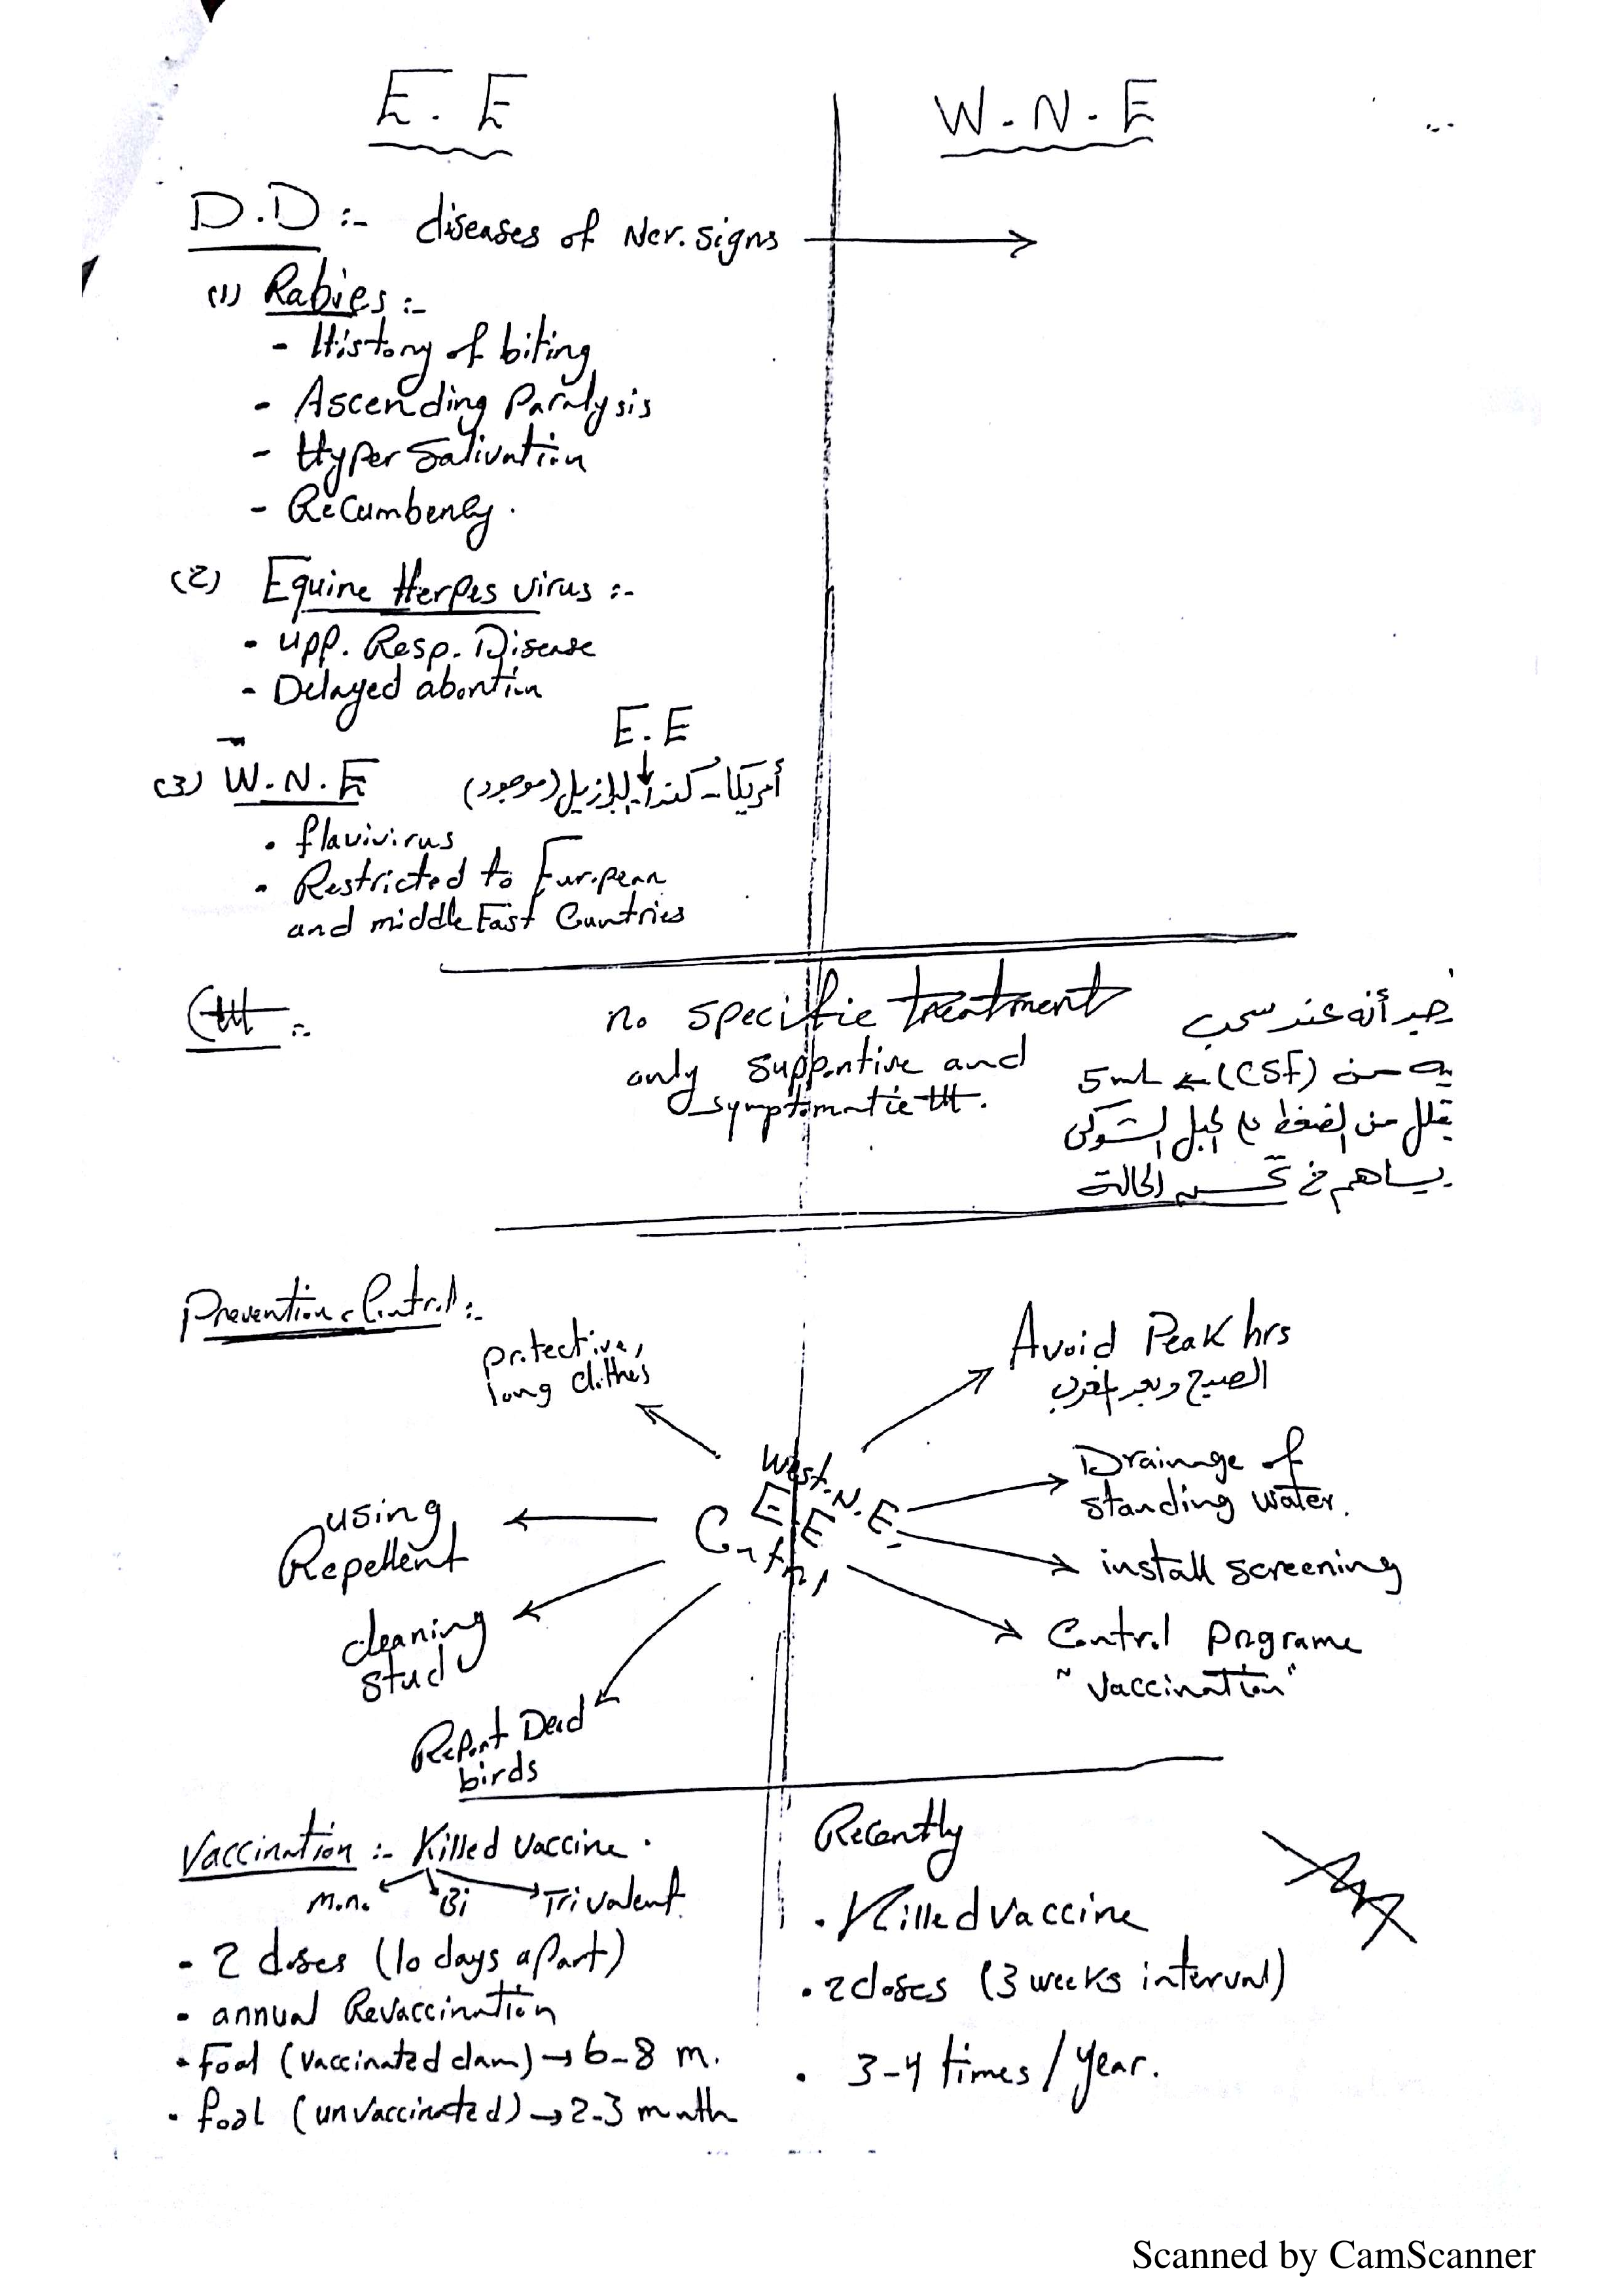 E.E
W.N.E
D.D :- diseases of Ner. signs
(1) Rabies :-
- History of biting
- Ascending Paralysis
- Hyper Salivation
- Recumbency.
(2) Equine Herpes virus :-
- upp. Resp. Disease
- Delayed abortion
E.E
(3) W.N.E
أمريكا - كندا - البرازيل (موجود)
• flavivirus
• Restricted to European
and middle East Countries
ttt :-
no specific treatment
only supportive and
symptomatic ttt.
أنه عند سحب
من (CSF) ← 5mL
يقلل من الضغط على الحبل الشوكى
يساهم في تحسين الحالة
Prevention & Control :-
protective,
long clothes
Avoid Peak hrs
الصبح وبعد المغرب
Drainage of
standing water.
install screening
Control programe
"Vaccination"
West. N. E.
E.E
Control
using
Repellent
cleaning
stud
Report Dead
birds
Vaccination :- Killed vaccine.
mono. Bi Trivalent
- 2 doses (10 days apart)
- annual Revaccination
• Foal (vaccinated dam) → 6-8 m.
• foal (unvaccinated) → 2-3 month
Recently
• Killed vaccine
• 2 doses (3 weeks interval)
• 3-4 times / year.
Scanned by CamScanner